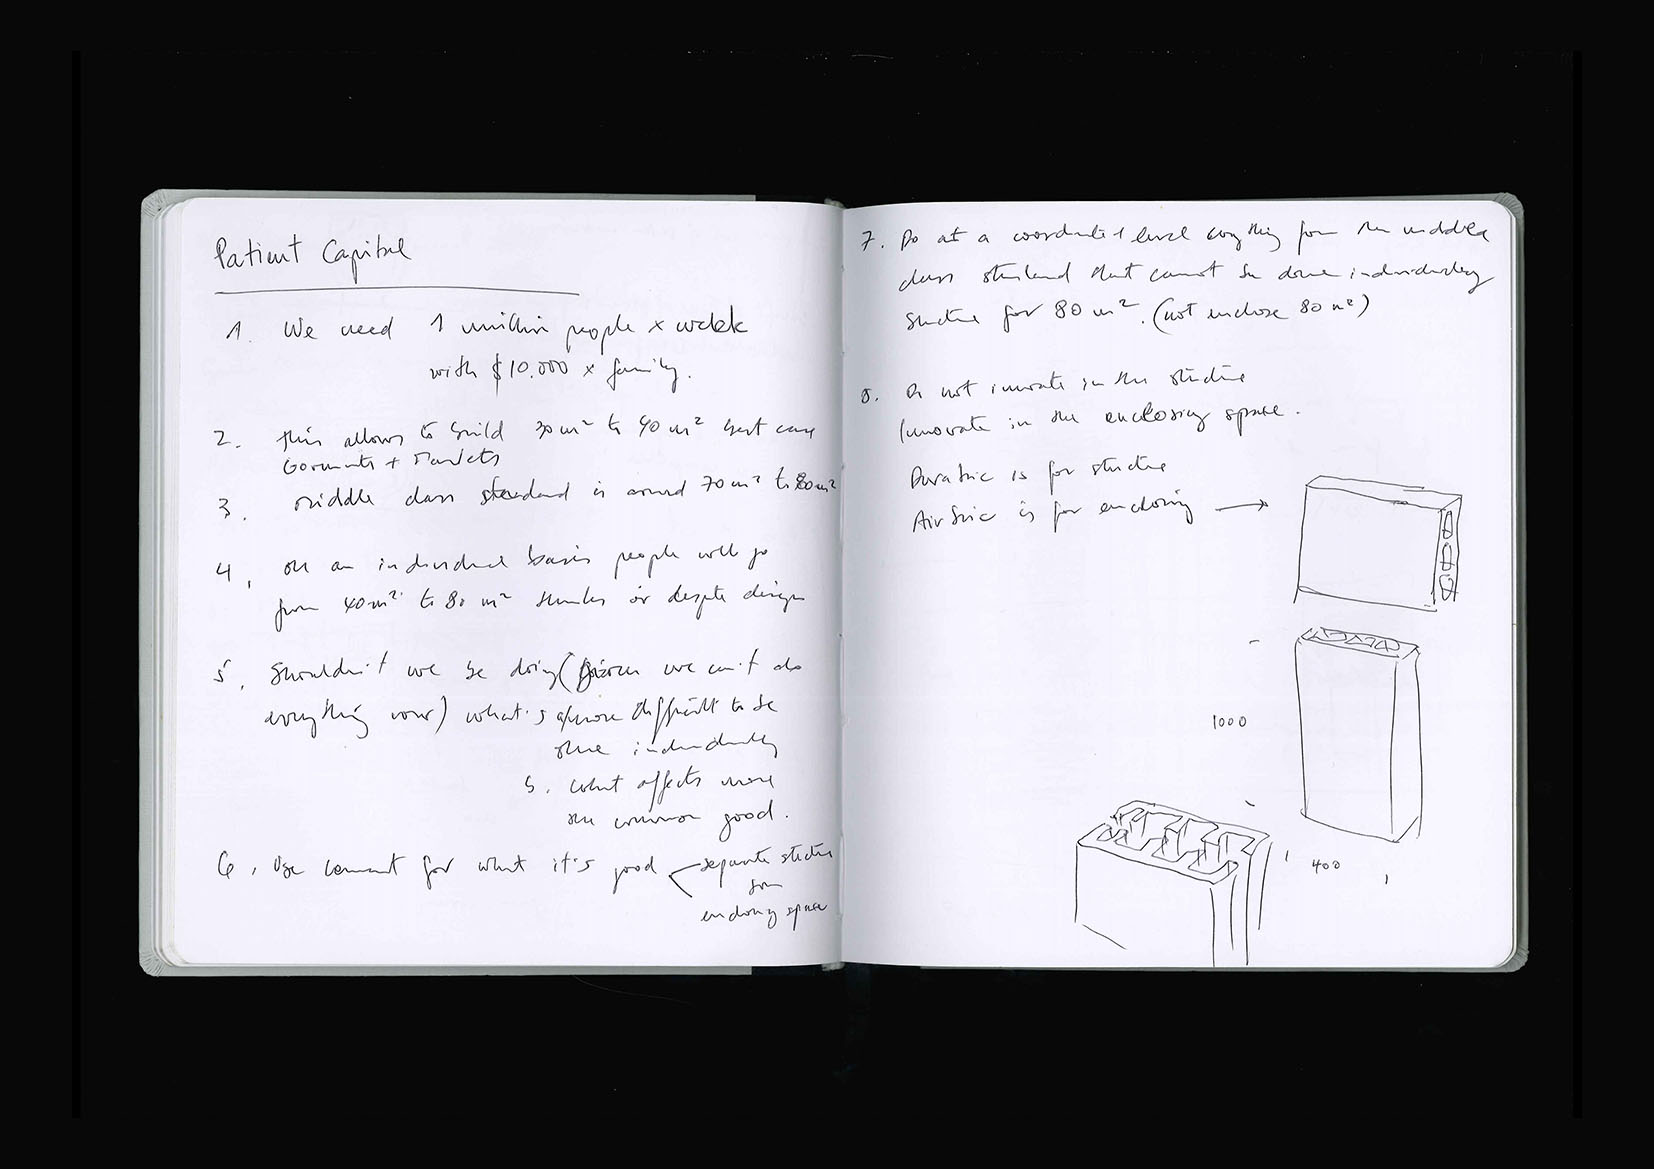 Patient Capital
1. We need 1 million people x week
with $10.000 x family.
2. This allows to build 30 m² to 40 m² best case
Goverments + Markets
3. Middle class standard is around 70 m² to 80 m²
4. On an individual basis people will go
from 40 m² to 80 m² thanks or despite design
5. Shouldn't we be doing (given we can't do
everything now) what's a/more difficult to be
done individually
b. what affects more
the common good.
6. Use cement for what it's good
separate structure
from
enclosing space
7. Do at a coordinated level everything for the middle
class standard that cannot be done individually
Structure for 80 m². (not enclose 80 m²)
8. Do not innovate in the structure
Innovate in the enclosing space.
Durabric is for structure
Airbric is for enclosing →
1000
400